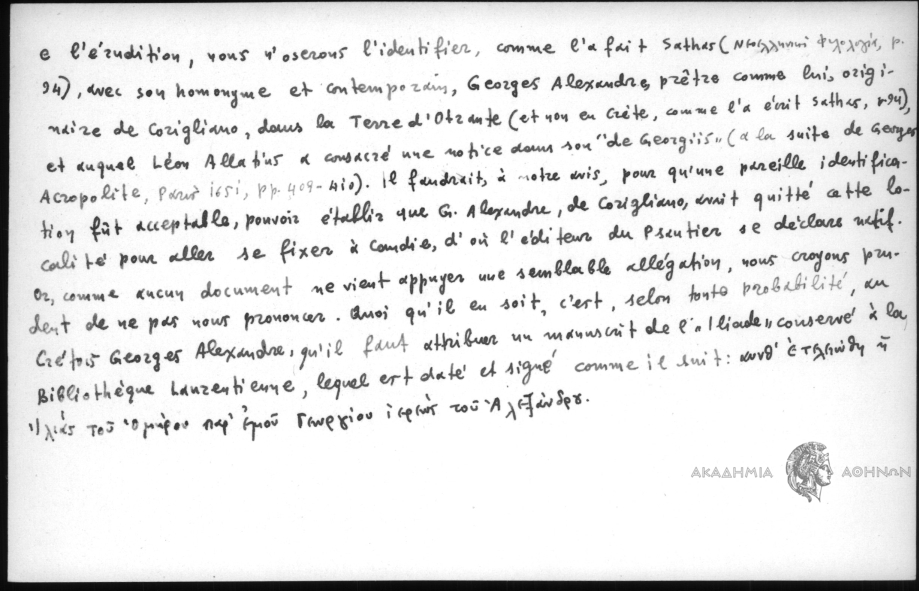 e l'érudition, nous n'oserons l'identifier, comme l'a fait Sathas (Νεοελληνική Φιλολογία, p.
94), avec son homonyme et contemporain, Georges Alexandre, prêtre comme lui, origi-
naire de Corigliano, dans la Terre d'Otrante (et non en Crète, comme l'a écrit Sathas, p. 94),
et auquel Léon Allatius a consacré une notice dans son "de Georgiis" (a la suite de Georges
Acropolite, Paris 1651, pp. 409-410). Il faudrait, à notre avis, pour qu'une pareille identifica-
tion fût acceptable, pouvoir établir que G. Alexandre, de Corigliano, avait quitté cette lo-
calité pour aller se fixer à Candie, d'où l'éditeur du Psautier se déclare natif.
Or, comme aucun document ne vient appuyer une semblable allégation, nous croyons pru-
dent de ne pas nous prononcer. Quoi qu'il en soit, c'est, selon toute probabilité, au
Crétois Georges Alexandre, qu'il faut attribuer un manuscrit de l'"Iliade" conservé à la
Bibliothèque Laurentienne, lequel est daté et signé comme il suit: ἐτελειώθη ἡ
Ἰλιάς τοῦ Ὁμήρου παρ' ἐμοῦ Γεωργίου ἱερέως τοῦ Ἀλεξάνδρου.
ΑΚΑΔΗΜΙΑ ΑΘΗΝΩΝ